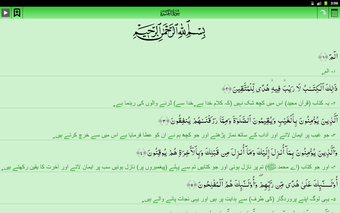 3:06
بِسْمِ اللّٰهِ الرَّحْمٰنِ الرَّحِيْمِ
الٓمٓ ﴿١﴾
۱- الم
ذَٰلِكَ الْكِتَـٰبُ لَا رَيْبَ فِيهِ هُدًى لِّلْمُتَّقِينَ ﴿٢﴾
۲- یہ کتاب (قرآن مجید) اس میں کچھ شک نہیں (کہ کلامِ خدا ہے۔ خدا سے) ڈرنے والوں کی رہنما ہے۔
الَّذِينَ يُؤْمِنُونَ بِالْغَيْبِ وَيُقِيمُونَ الصَّلَوٰةَ وَمِمَّا رَزَقْنَـٰهُمْ يُنفِقُونَ ﴿٣﴾
۳- جو غیب پر ایمان لاتے اور آداب کے ساتھ نماز پڑھتے اور جو کچھ ہم نے ان کو عطا فرمایا ہے اس میں سے خرچ کرتے ہیں۔
وَالَّذِينَ يُؤْمِنُونَ بِمَآ أُنزِلَ إِلَيْكَ وَمَآ أُنزِلَ مِن قَبْلِكَ وَبِالْـَٔاخِرَةِ هُمْ يُوقِنُونَ ﴿٤﴾
۴- اور جو کتاب (اے محمدﷺ) تم پر نازل ہوئی اور جو کتابیں تم سے پہلے (پیغمبروں پر) نازل ہوئیں سب پر ایمان لاتے اور آخرت کا یقین رکھتے ہیں۔
أُو۟لَـٰٓئِكَ عَلَىٰ هُدًى مِّن رَّبِّهِمْ وَأُو۟لَـٰٓئِكَ هُمُ الْمُفْلِحُونَ ﴿٥﴾
۵- یہی لوگ اپنے پروردگار (کی طرف) سے ہدایت پر ہیں اور یہی نجات پانے والے ہیں۔